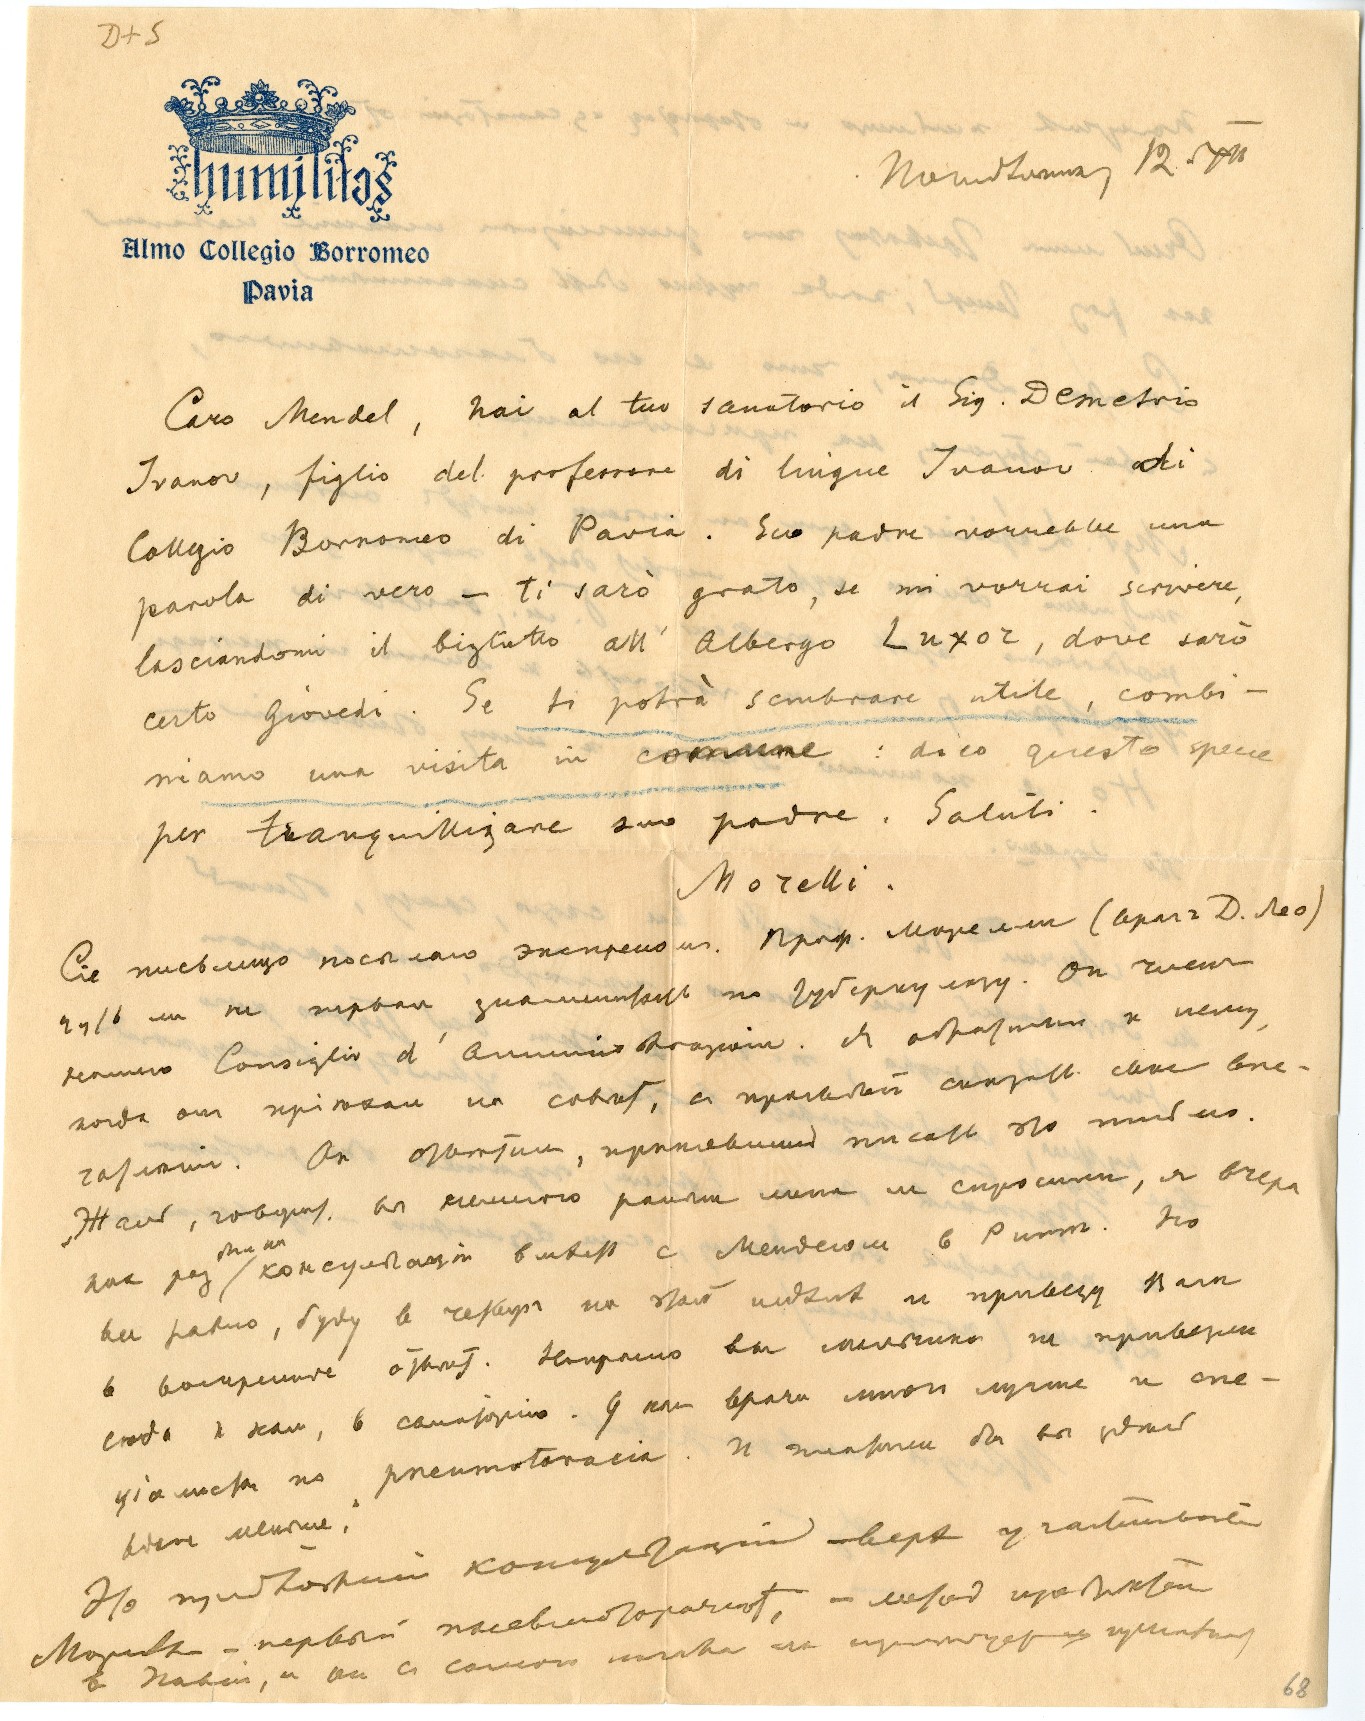 D+S
humilitas
Almo Collegio Borromeo
Pavia
12 XII
Caro Mendel, hai al tuo sanatorio il Sig. Demetrio
Ivanov, figlio del professore di lingue Ivanov di
Collegio Borromeo di Pavia. Suo padre vorrebbe una
parola di vero – ti sarò grato, se mi vorrai scrivere,
lasciandomi il biglietto all'Albergo Luxor, dove sarò
certo Giovedì. Se ti potrà sembrare utile, combi-
niamo una visita in comune: dico questo spece
per tranquillizzare suo padre. Saluti.
Morelli.
Сіе письмецо посылаю экспрессом. Проф. Морелли (врач Д. Лео)
чуть ли не первая знаменитость по туберкулезу. Он член
нашего Consiglio d'Amministrazione. Я обратился к нему,
когда он пріехал на совѣт, с просьбой сказать свое впе-
чатлѣніе. Он отвѣтил, приписать это письмо.
"Жаль, говорит, вы немного раньше меня не спросили, я вчера
как раз был на консультаціи вмѣстѣ с Менделем в Римѣ. Но
все равно, буду в четверг на этой недѣлѣ и привезу Вам
в воскресенье отвѣт. Напрасно вы мальчика не привезли
сюда к нам, в санаторію. У нас врачи много лучше и спе-
ціалисты по pneumotoracia. И платили бы вы здѣсь
вдвое меньше."
Но консультаціи
Морелли – первый
в Павіи, и он с самого начала
68